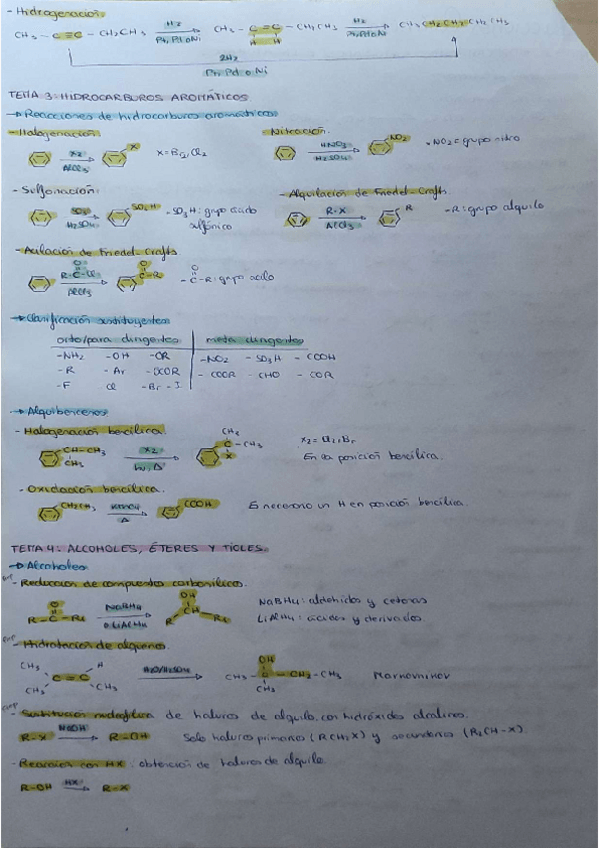 - Hidrogenación
CH₃ - C ≡ C - CH₂CH₃ H₂ Pt, Pd o Ni CH₃ - C = C - CH₂CH₃ H₂ Pt, Pd o Ni CH₃CH₂CH₂CH₂CH₃
H H
2H₂
Pt, Pd o Ni
TEMA 3: HIDROCARBUROS AROMÁTICOS
→ Reacciones de hidrocarburos aromáticos
- Halogenación Nitración
X₂ AlCl₃ X X = Br₂, Cl₂ HNO₃ H₂SO₄ NO₂ • NO₂ = grupo nitro
- Sulfonación: - Alquilación de Friedel-Crafts
SO₃ H₂SO₄ SO₃H - SO₃H: grupo ácido sulfónico R-X AlCl₃ R -R: grupo alquilo
- Acilación de Friedel-Crafts
R-C-Cl O AlCl₃ O C-R O - C - R: grupo acilo
→ Clasificación sustituyentes
orto/para dirigentes meta dirigentes
-NH₂ -OH -OR -NO₂ -SO₃H -COOH
-R -Ar -OCOR -COOR -CHO -COR
-F Cl -Br -I
→ Alquilbencenos
- Halogenación bencílica.
CH-CH₃ CH₃ X₂ hν, Δ CH₃ C - CH₃ X X₂ = Cl₂, Br₂
En la posición bencílica.
- Oxidación bencílica.
CH₂CH₃ KMnO₄ Δ COOH Es necesario un H en posición bencílica
TEMA 4: ALCOHOLES, ÉTERES Y TIOLES.
→ Alcoholes
- Reducción de compuestos carbonílicos.
O R - C - R₁ NaBH₄ o LiAlH₄ OH R CH R₁ NaBH₄: aldehídos y cetonas
LiAlH₄: ácidos y derivados.
- Hidratación de alquenos.
CH₃ H CH₃ C = C CH₃ H₂O/H₂SO₄ OH CH₃ - C - CH₂ - CH₃ CH₃ Markovnikov
- Sustitución nucleofílica de haluros de alquilo con hidróxidos alcalinos.
R - X NaOH R - OH Solo haluros primarios (RCH₂X) y secundarios (R₂CH-X).
- Reacción con HX: obtención de haluros de alquilo.
R-OH HX R-X